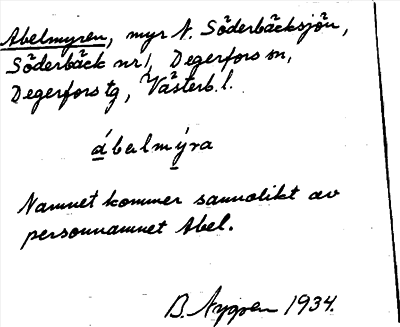 Abelmyren, myr N. Söderbäcksjön,
Söderbäck nr 1, Degerfors sn,
Degerfors tg, Västerb. l.
ábelmýra
Namnet kommer sannolikt av
personnamnet Abel.
B. Nygren 1934.